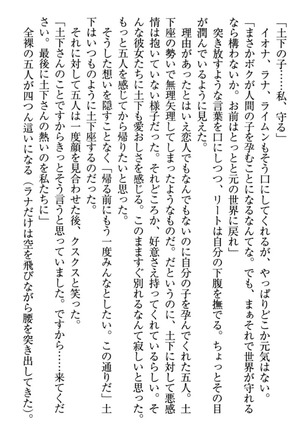 「土下の子……私、守る」
イオナ、ラナ、ライムンもそう口にしてくれるが、やっぱりどこか元気はない。
「まさかボクが人間の子を孕むことになるなんてな。でも、まぁそれで世界が守れる
なら構わないか。お前はとっとと元の世界に戻れ」
突き放すような言葉を口にしつつ、リートは自分の下腹を撫でる。ちょっとその目
が潤んでいるように見えた。
理由があったとはいえ恋人でもなんでもないのに自分の子を孕んでくれた五人。土
下座の勢いで無理矢理してしまったようなものだ。だというのに、土下に対して悪感
情は抱いていない様子だった。それどころか、好意さえ持ってくれているらしい。そ
んな彼女たちに土下も愛おしさを感じる。このまますぐ別れるなんて寂しいと思った。
もっと五人を感じてから帰りたいと思った。
そうした想いを隠すことなく「帰る前にもう一度みんなとしたい。この通りだ」土
下はいつものように土下座するのだった。
それに対して五人は一度顔を見合わせた後、クスクスと笑う。
「土下さんのことですからきっとそう言うと思っていました。ですから……来てくだ
さい。最後に土下さんの熱いのを私たちに」
全裸の五人が四つん這いになる(ラナだけは空を飛びながら腰を突き出してきた)。